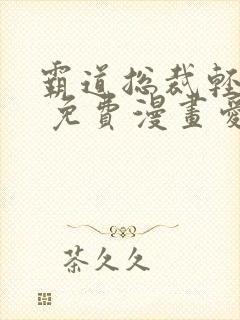 霸道总裁輕
免費漫畫愛
茶久久